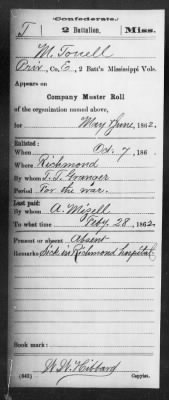 Confederate.
T 2 Battalion. Miss.
M. Towell
Priv., Co. E., 2 Batt'n Mississippi Vols.
Appears on
Company Muster Roll
of the organization named above,
for May & June, 1862.
Enlisted:
When Oct. 7, 186
Where Richmond
By whom T. T. Granger
Period For the war.
Last paid:
By whom A. Mizell
To what time Feby. 28, 1862.
Present or absent Absent
Remarks: Sick in Richmond hospital
Book mark:
W. W. Hibbard
(642) Copyist.